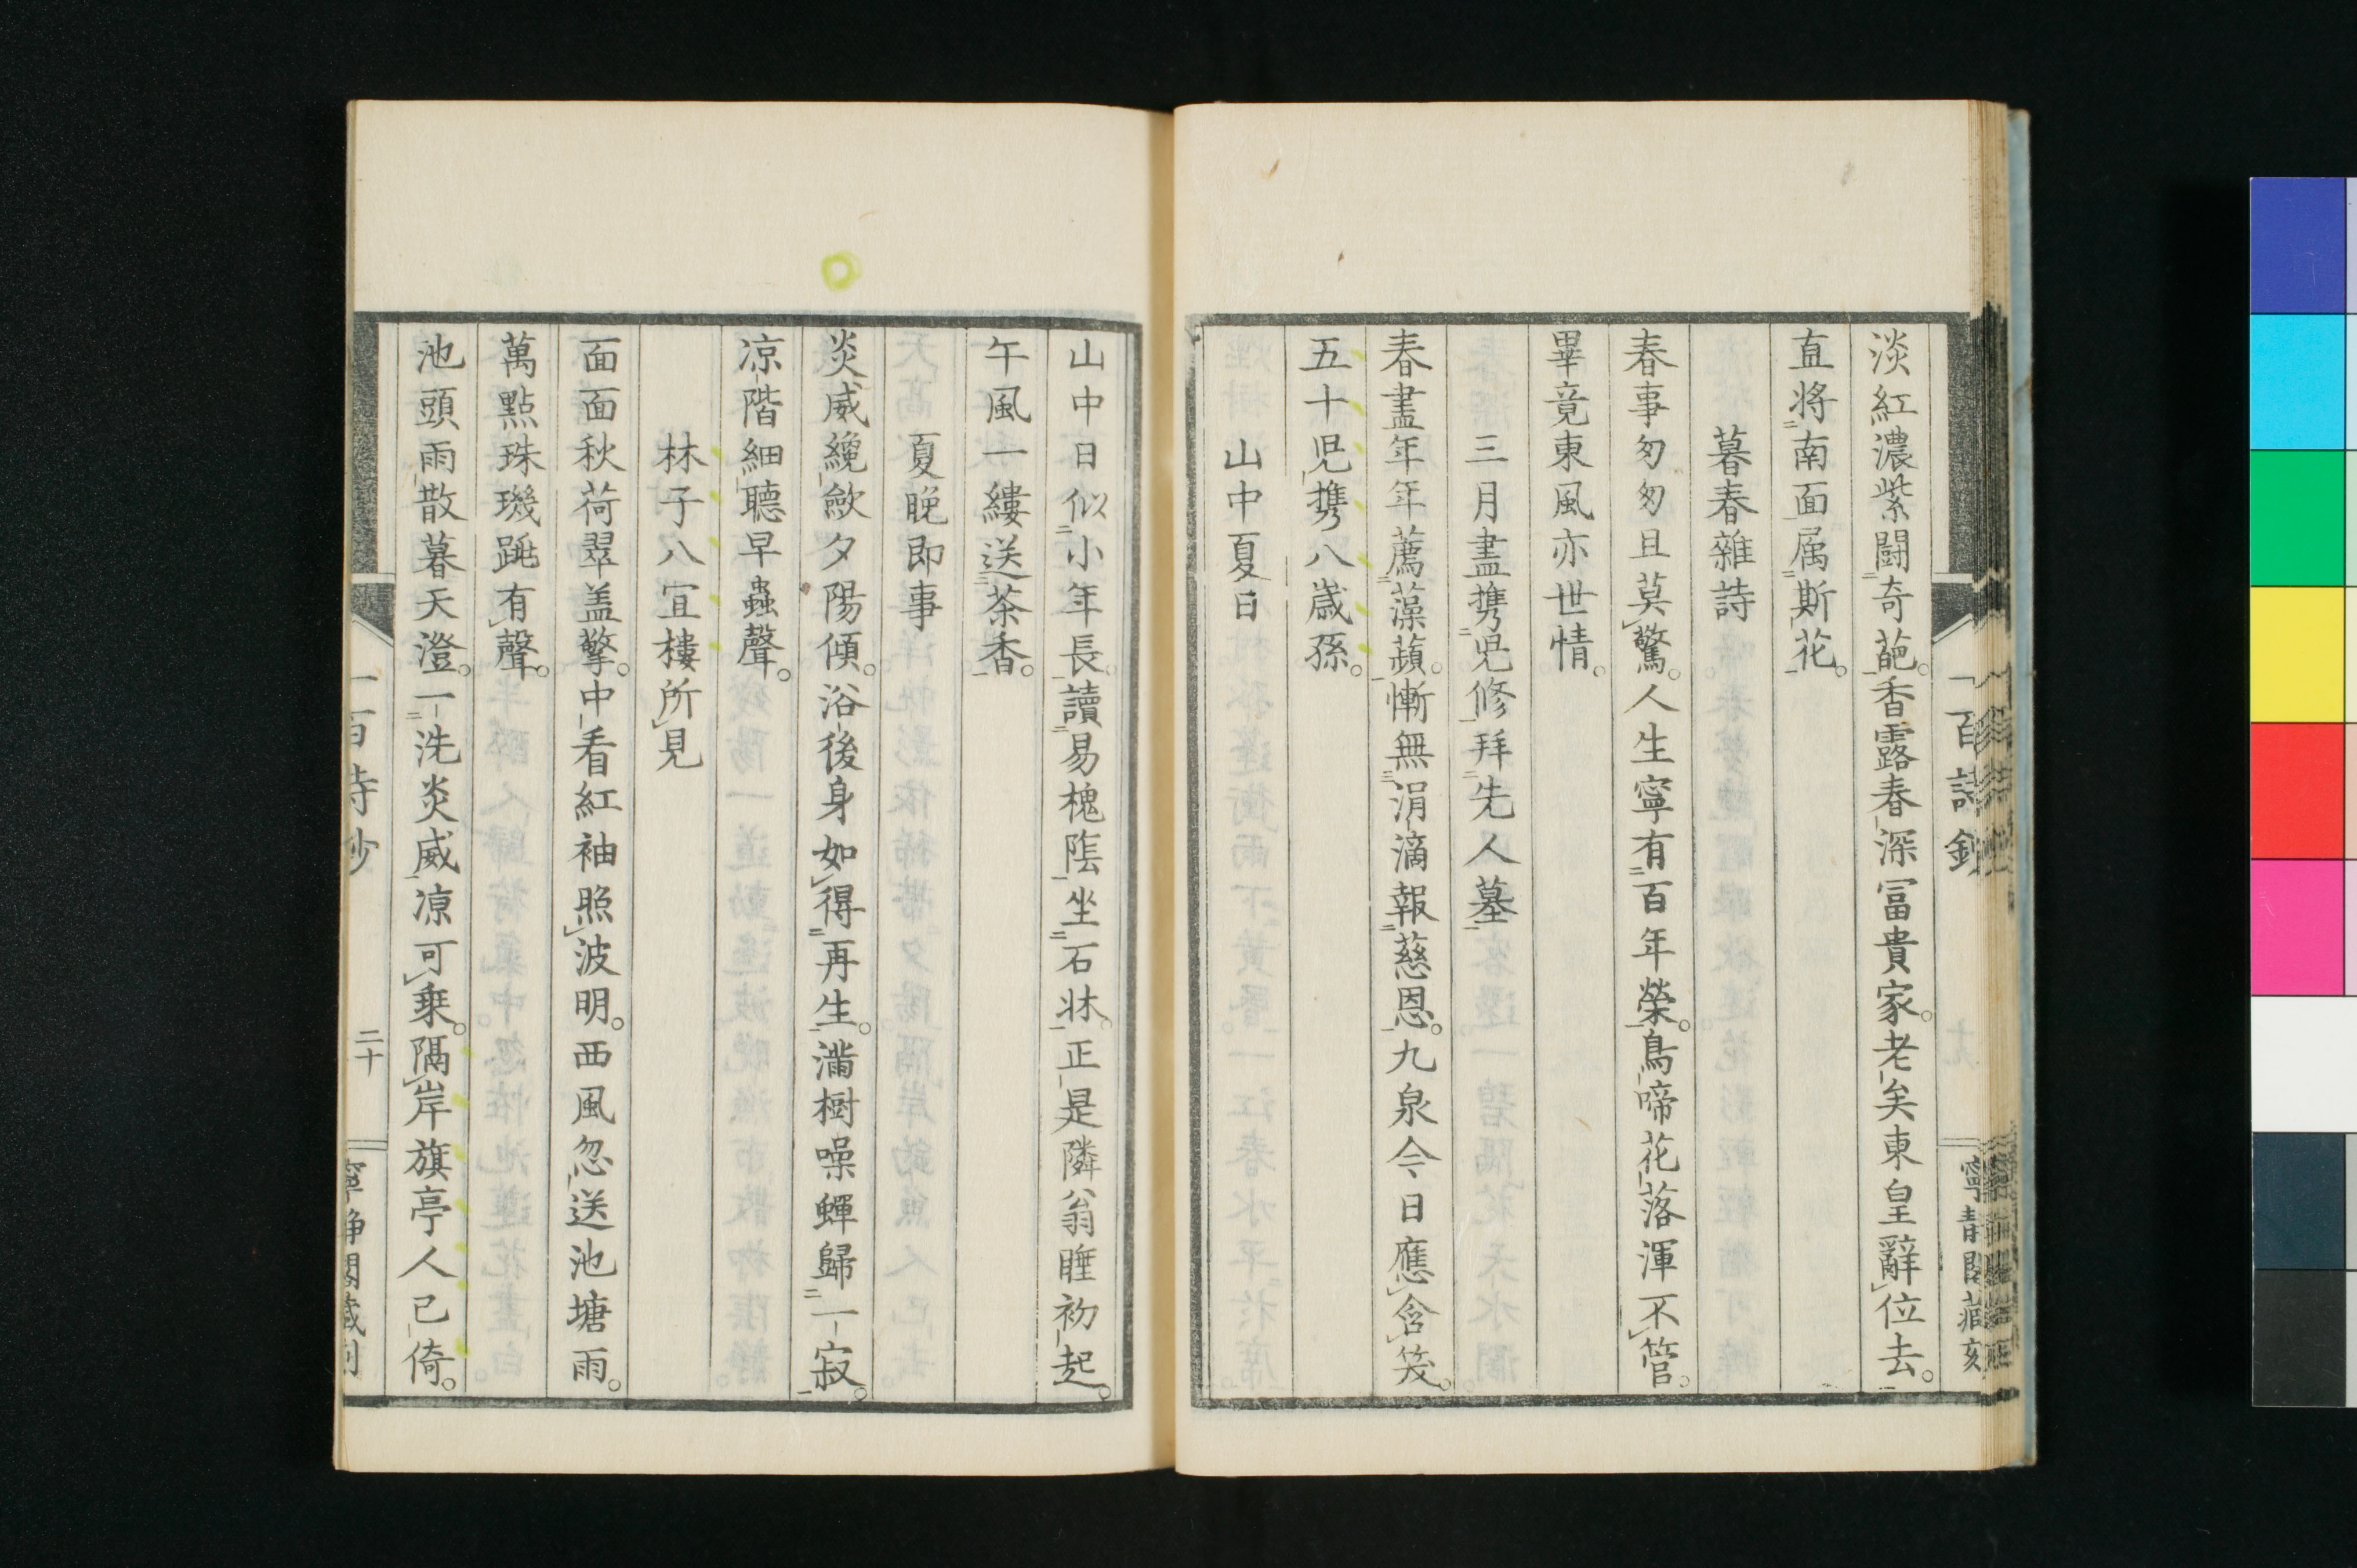 淡紅濃紫鬪奇葩。香露春深冨貴家。老矣東皇辭位去。
直將南面属斯花。
暮春雜詩
春事匆匆且莫驚。人生寧有百年榮。鳥啼花落渾不管。
畢竟東風亦世情。
三月盡携児修拜先人墓
春盡年年薦藻蘋。慚無涓滴報慈恩。九泉今日應含笑。
五十児携八歳孫。
山中夏日
山中日似小年長。讀易槐陰坐石牀。正是隣翁睡初起。
午風一縷送茶香。
夏晚即事
炎威纔歛夕陽傾。浴後身如得再生。滿樹噪蟬歸一寂。
凉階細聽早蟲聲。
林子八宜樓所見
面面秋荷翠盖擎。中看紅袖照波明。西風忽送池塘雨。
萬點珠璣跳有聲。
池頭雨散暮天澄。一洗炎威凉可乗。隔岸旗亭人已倚。
二十